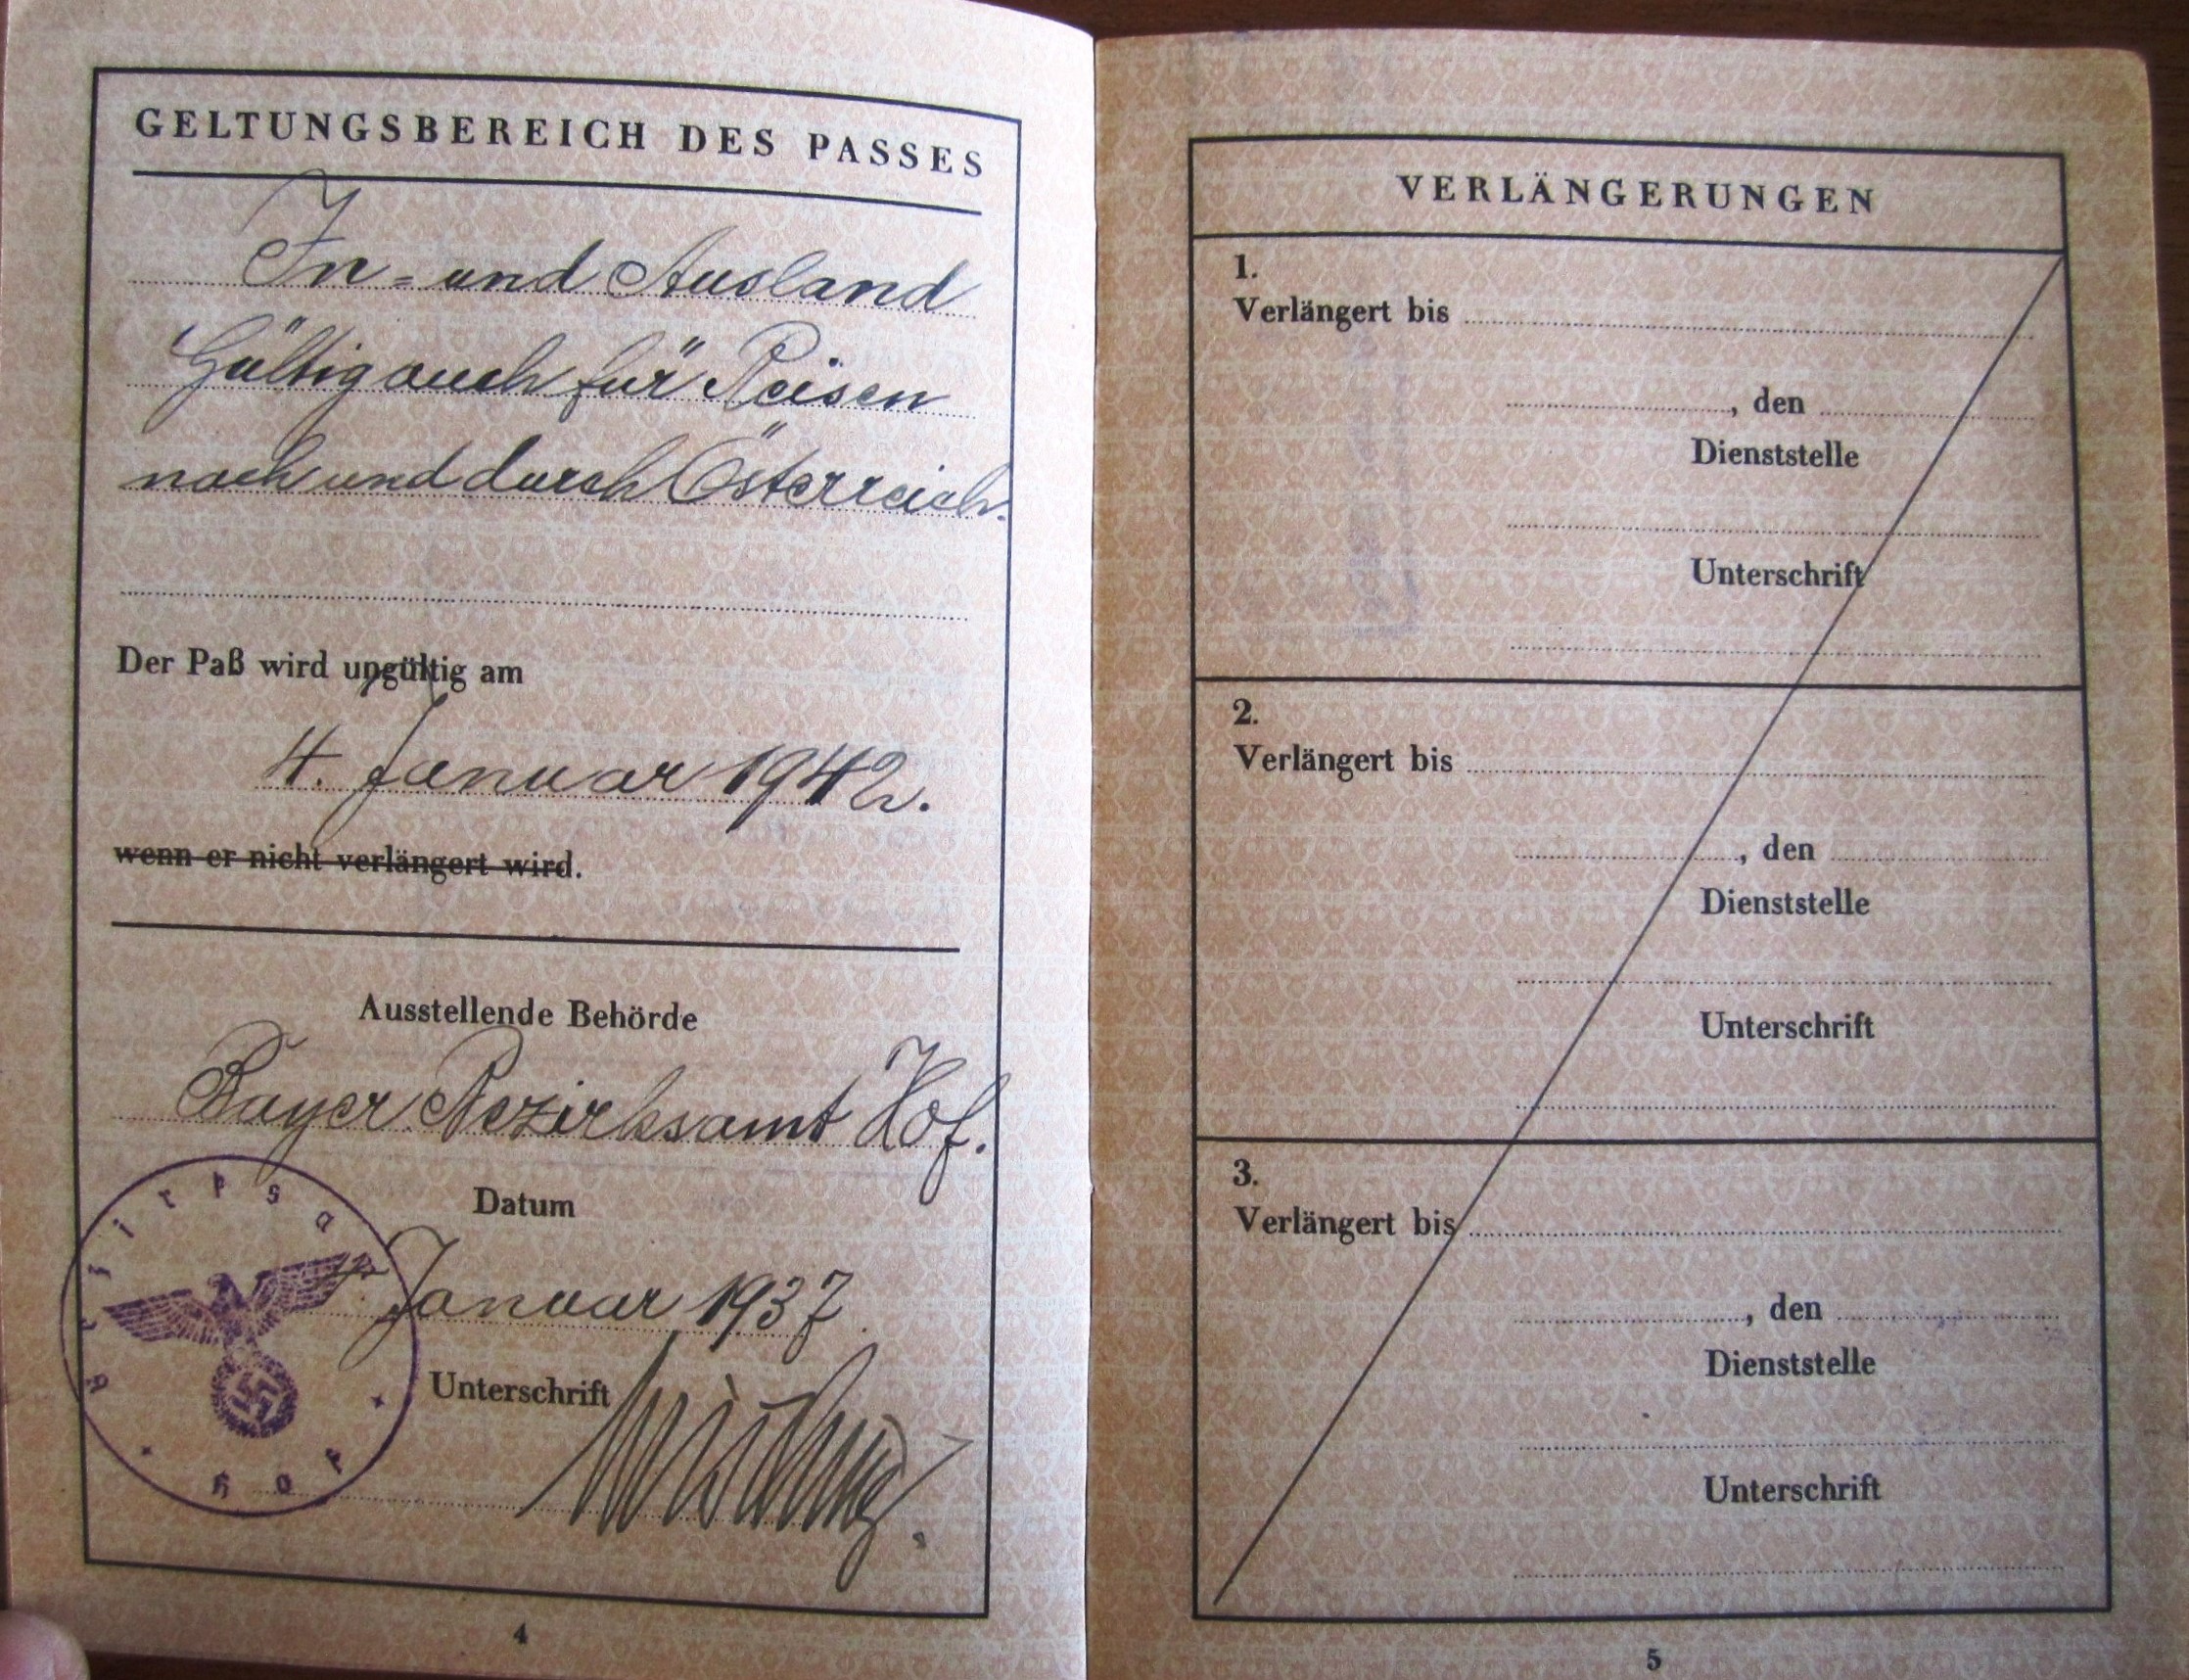 GELTUNGSBEREICH DES PASSES
In- und Ausland
Gültig auch für Reisen
nach und durch Österreich.
Der Paß wird ungültig am
4. Januar 1942.
wenn er nicht verlängert wird.
Ausstellende Behörde
Bayer. Bezirksamt Hof.
Datum
Januar 1937
Unterschrift
Bezirksa
Hof
4
VERLÄNGERUNGEN
1.
Verlängert bis
, den
Dienststelle
Unterschrift
2.
Verlängert bis
, den
Dienststelle
Unterschrift
3.
Verlängert bis
, den
Dienststelle
Unterschrift
5